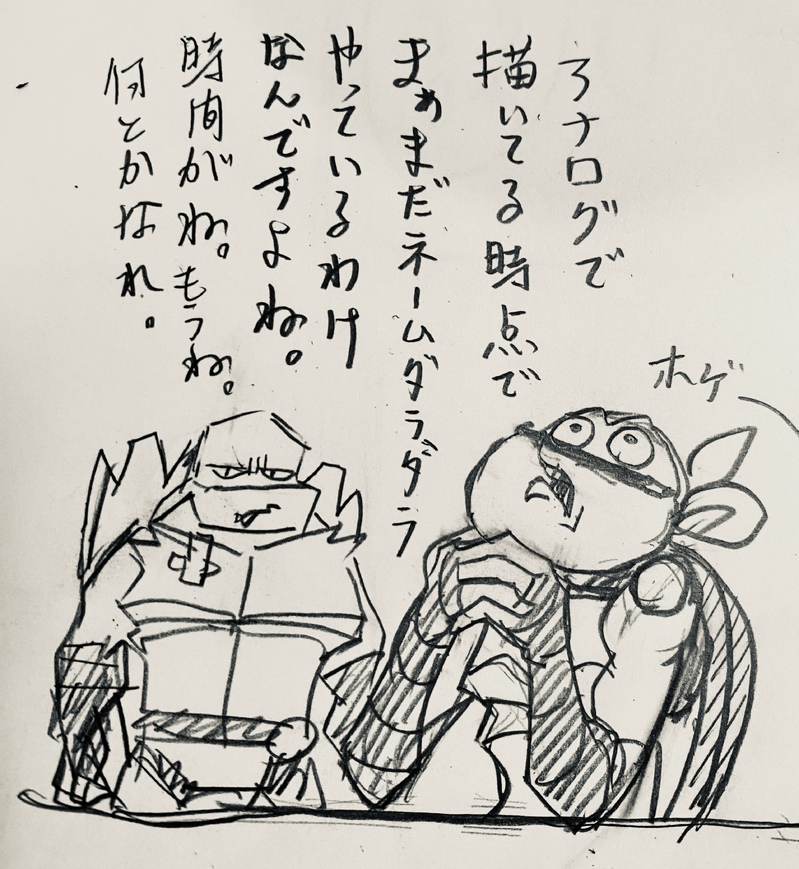 アナログで
描いてる時点で
まぁまだネームダラダラ
やっているわけ
なんですよね。
時間がね。もうね。
何とかなれ。
ホゲ